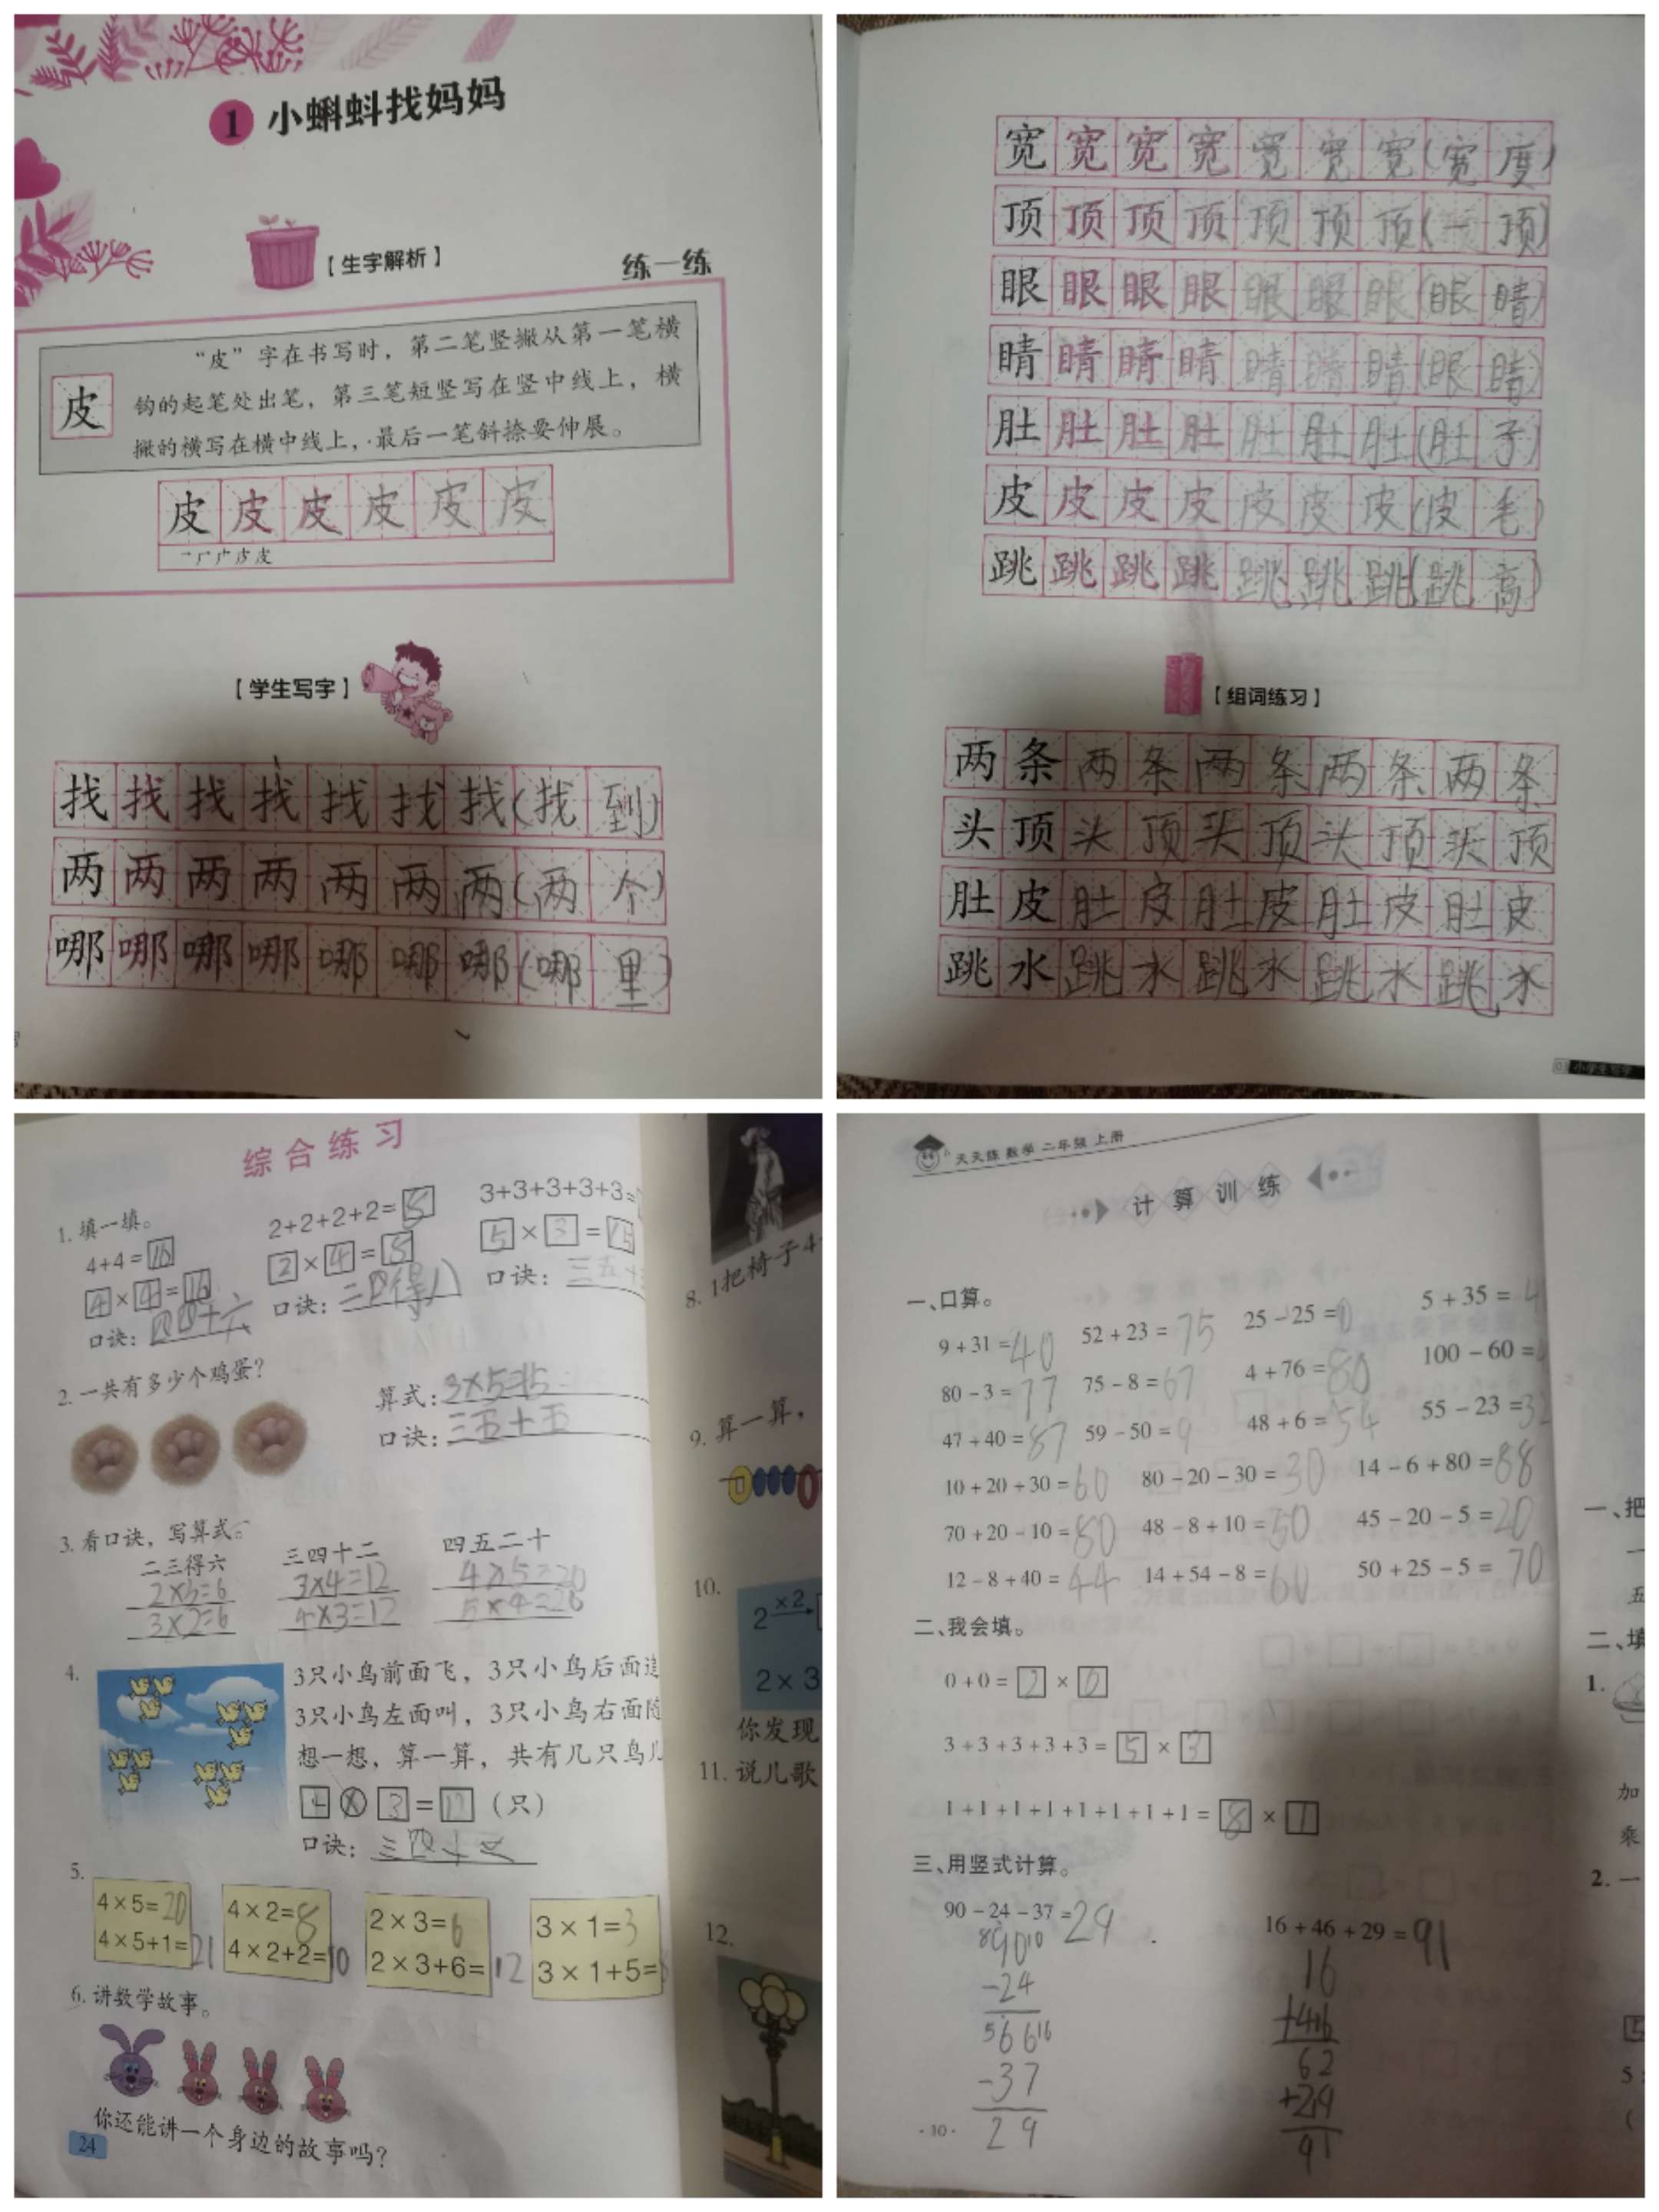 1 小蝌蚪找妈妈
【生字解析】
练一练
皮
“皮”字在书写时，第二笔竖撇从第一笔横
钩的起笔处出笔，第三笔短竖写在竖中线上，横
撇的横写在横中线上，最后一笔斜捺要伸展。
皮皮皮皮皮皮
【学生写字】
找找找找找找找(找到)
两两两两两两两(两个)
哪哪哪哪哪哪哪(哪里)
宽宽宽宽宽宽宽(宽度)
顶顶顶顶顶顶顶(一顶)
眼眼眼眼眼眼眼(眼睛)
睛睛睛睛睛睛睛(眼睛)
肚肚肚肚肚肚肚(肚子)
皮皮皮皮皮皮皮(皮毛)
跳跳跳跳跳跳跳(跳高)
【组词练习】
两条两条两条两条两条
头顶头顶头顶头顶头顶
肚皮肚皮肚皮肚皮肚皮
跳水跳水跳水跳水跳水
03 小学生写字
综合练习
1. 填一填。
4+4=16
4×4=16
口诀：四四十六
2+2+2+2=8
2×4=8
口诀：二四得八
3+3+3+3+3=
5×3=15
口诀：三五十
2. 一共有多少个鸡蛋？
算式：3×5=15
口诀：三五十五
3. 看口诀，写算式。
二三得六 三四十二 四五二十
2×3=6 3×4=12 4×5=20
3×2=6 4×3=12 5×4=20
4.
3只小鸟前面飞，3只小鸟后面追
3只小鸟左面叫，3只小鸟右面随
想一想，算一算，共有几只鸟儿
4×3=12（只）
口诀：三四十二
5.
4×5=20 4×2=8 2×3=6 3×1=3
4×5+1=21 4×2+2=10 2×3+6=12 3×1+5=
6. 讲数学故事。
你还能讲一个身边的故事吗？
24
8. 1把椅子4
9. 算一算，
10.
2 ×2
2×3
你发现
11. 说儿歌
12.
天天练 数学 二年级 上册
计算训练
一、口算。
9+31=40 52+23=75 25-25=0 5+35=4
80-3=77 75-8=67 4+76=80 100-60=4
47+40=87 59-50=9 48+6=54 55-23=32
10+20+30=60 80-20-30=30 14-6+80=88
70+20-10=80 48-8+10=50 45-20-5=20
12-8+40=44 14+54-8=60 50+25-5=70
二、我会填。
0+0=2×0
3+3+3+3+3=5×3
1+1+1+1+1+1+1+1=8×1
三、用竖式计算。
90-24-37=29
90
-24
66
-37
29
16+46+29=91
16
+46
62
+29
91
·10·
一、把
一
五
二、填
1.
加
乘
2. 一
5